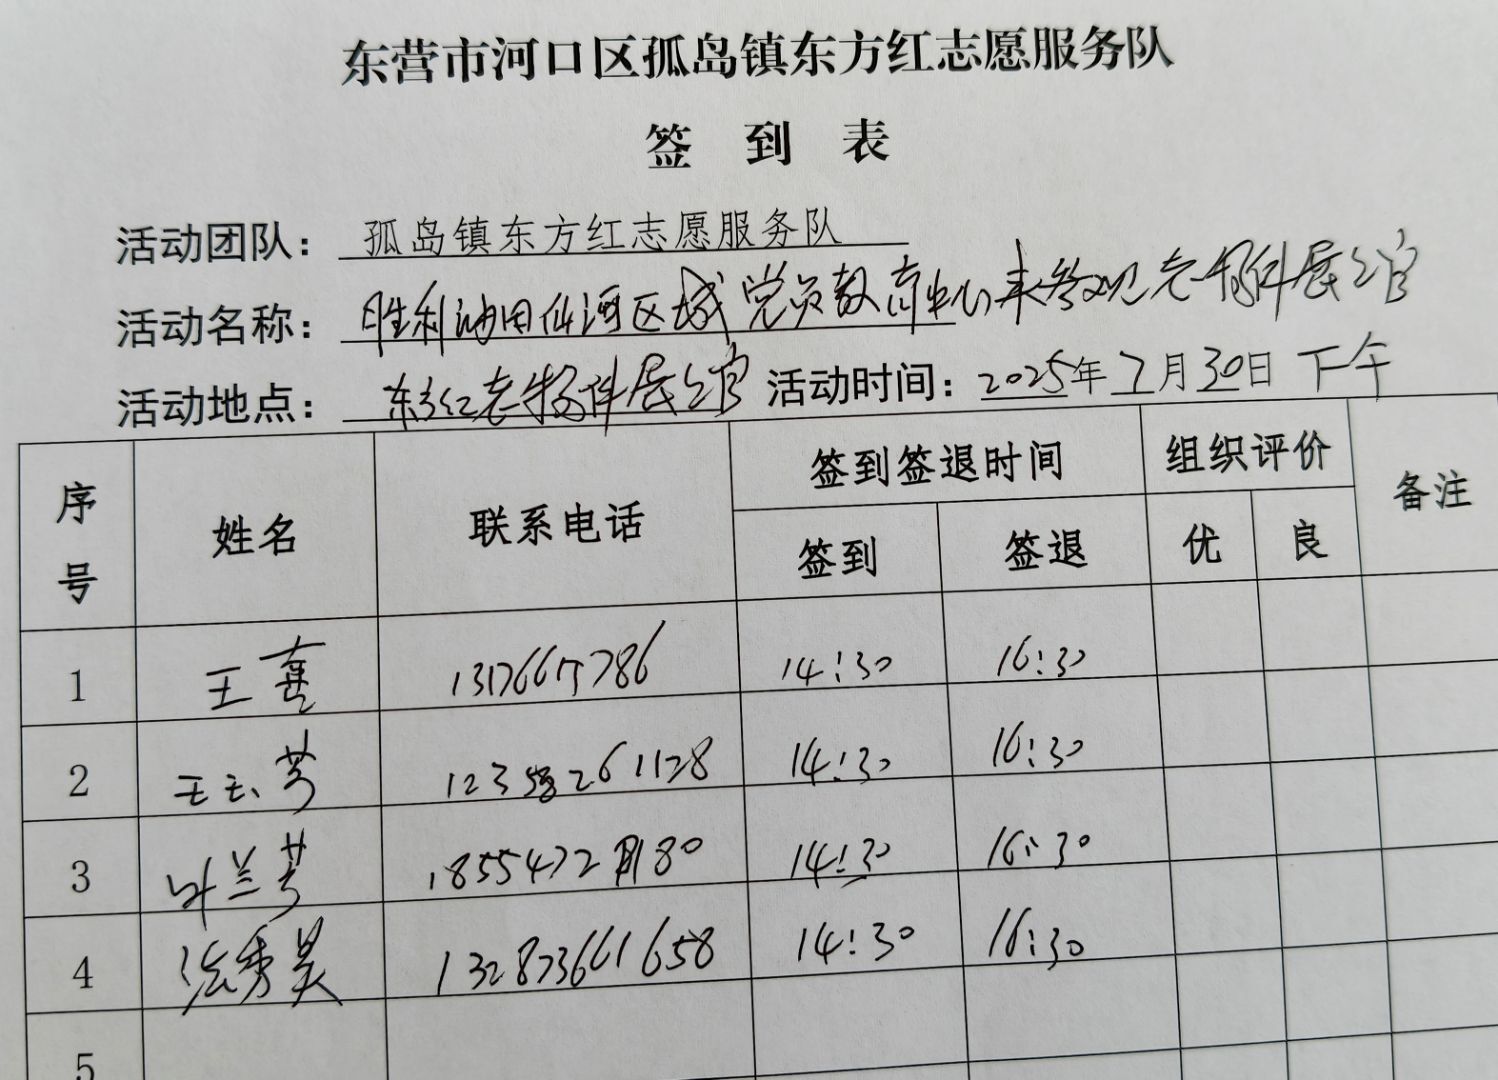 东营市河口区孤岛镇东方红志愿服务队
签 到 表
活动团队：孤岛镇东方红志愿服务队
活动名称：胜利油田仙河区域党员教育中心来参观老物件展览馆
活动地点：东方红老物件展览馆 活动时间：2025年7月30日 下午
序号 姓名 联系电话 签到签退时间 组织评价 备注
签到 签退 优 良
1 王 14:30 16:30
2 王玉芳 14:30 16:30
3 叶兰芳 14:30 16:30
4 张秀昊 132873661658 14:30 16:30
5